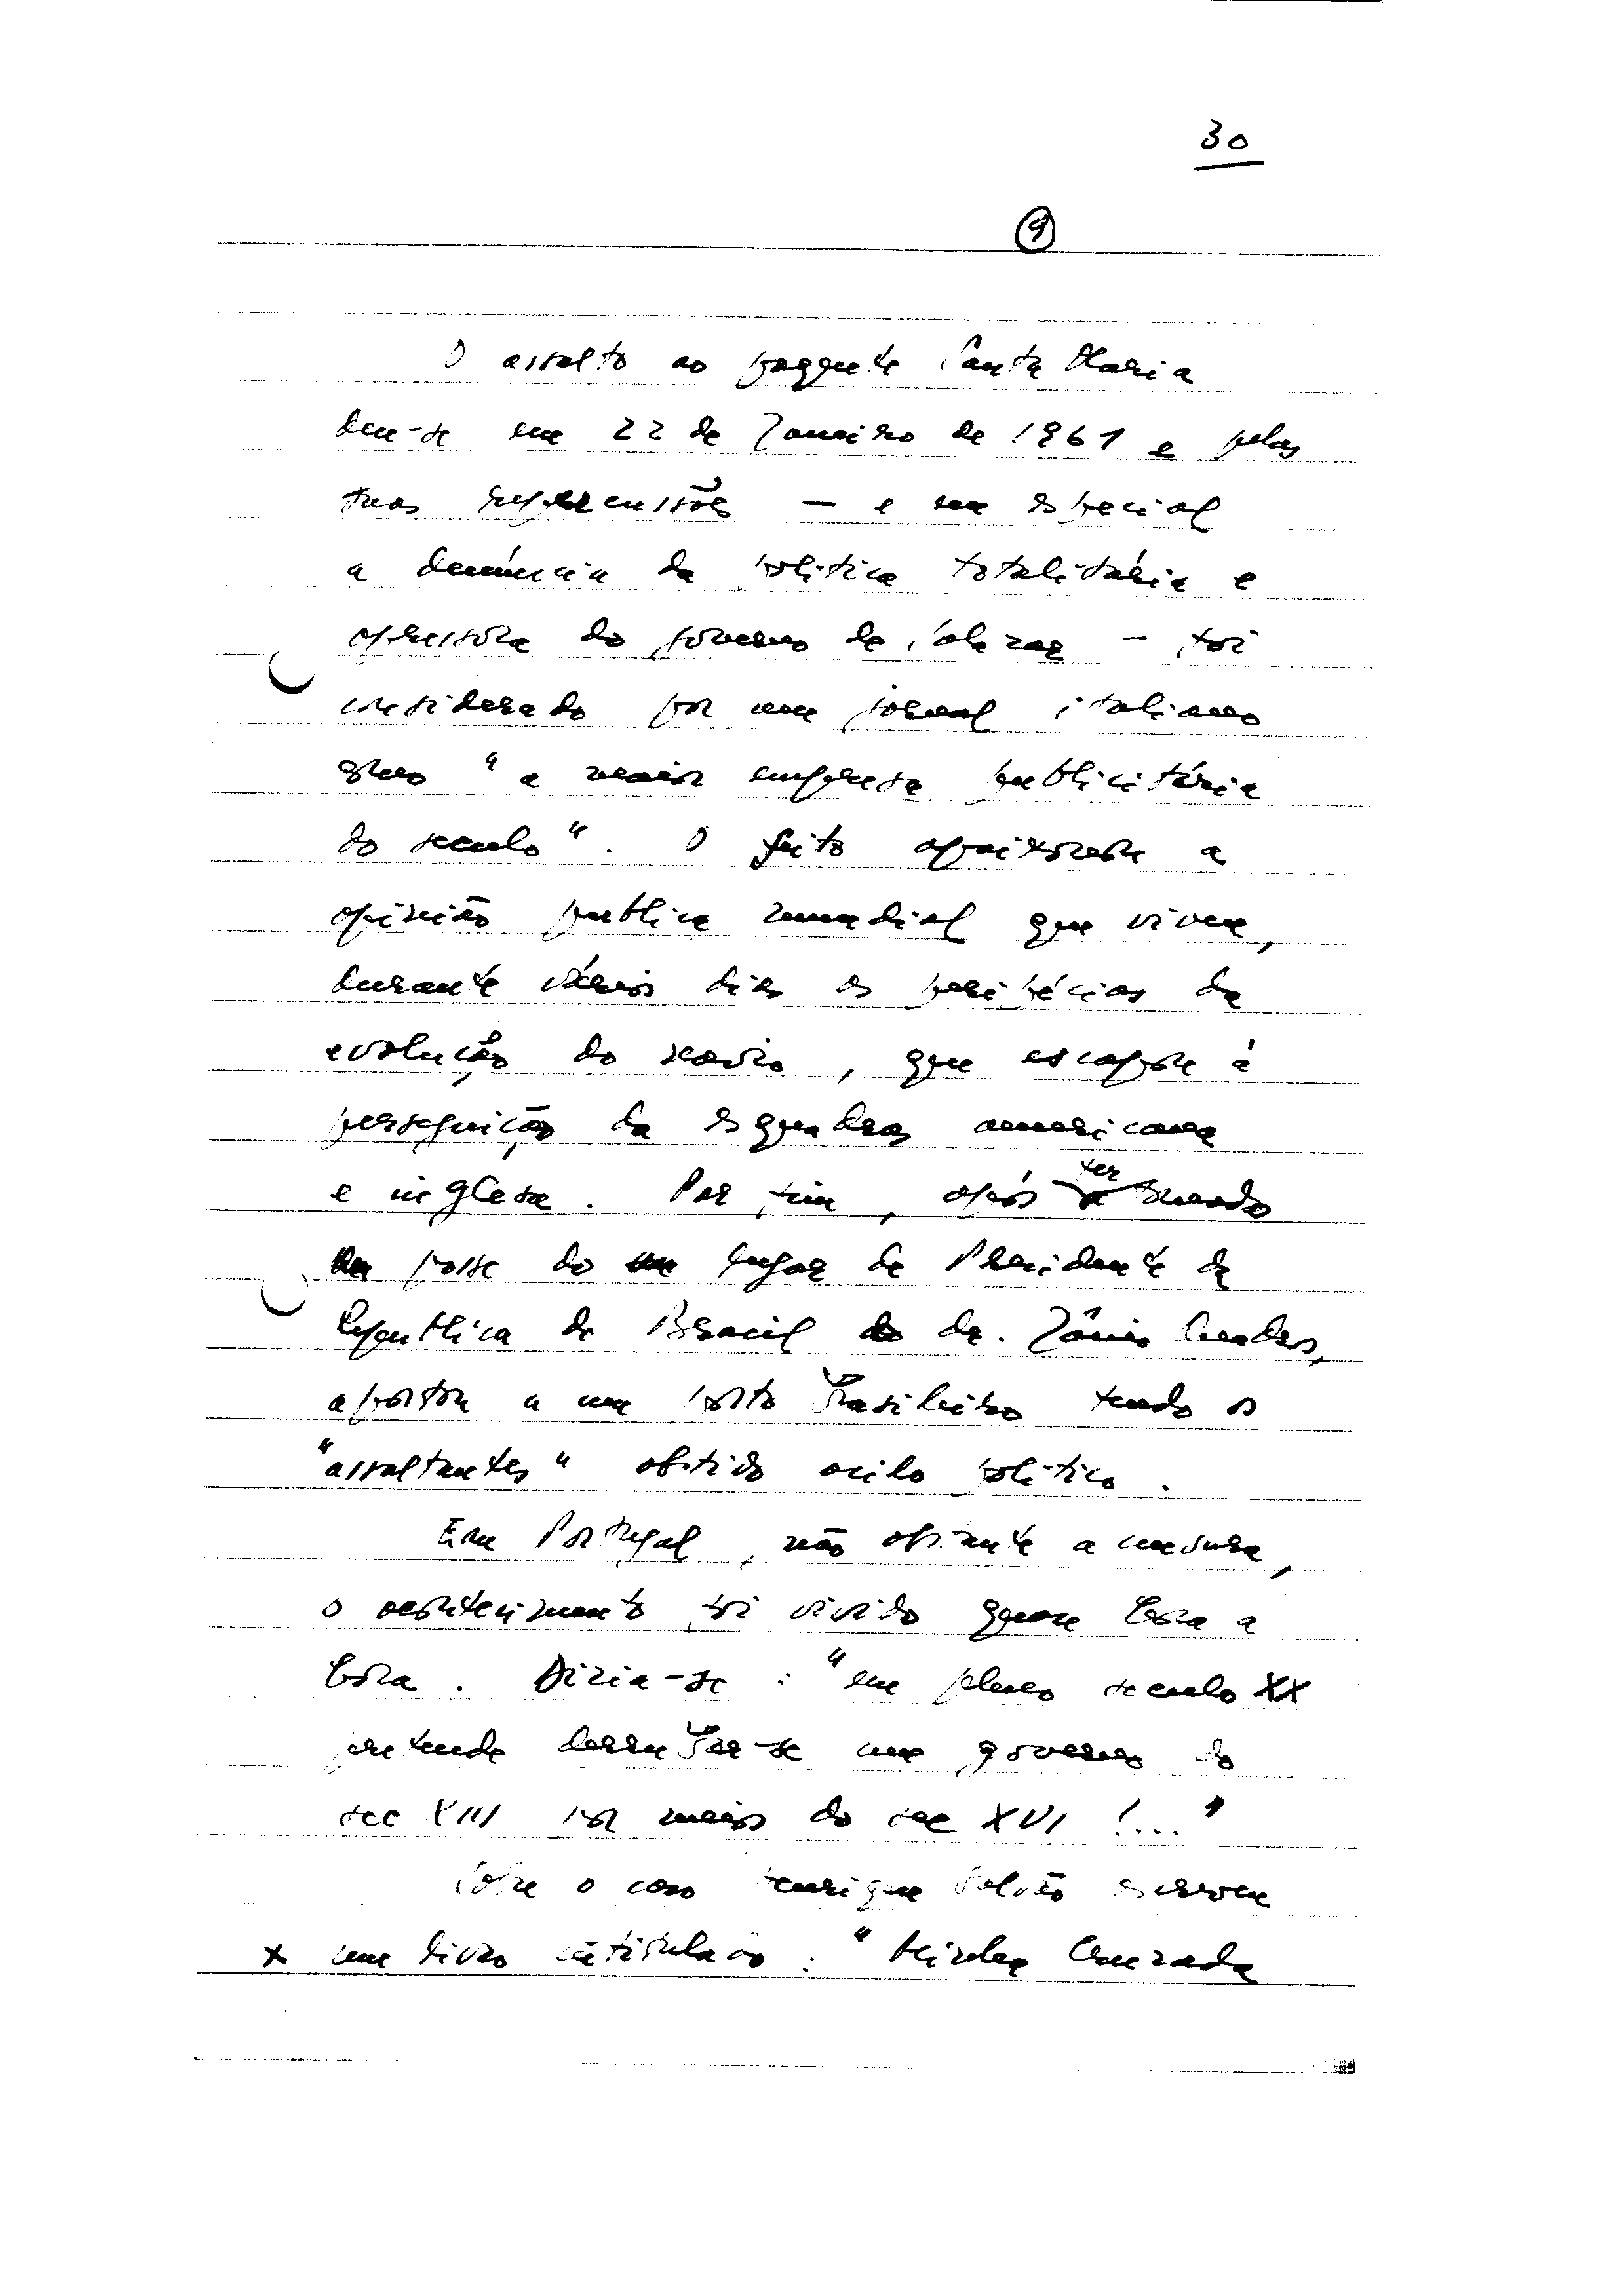 30
9
O assalto ao paquete Santa Maria
deu-se em 22 de Janeiro de 1961 e pelas
suas repercussões — e em especial
a denúncia da politica totalitária e
opressora do governo de Salazar — foi
considerado por um jornal italiano
como "a maior empresa publicitária
do seculo". O feito apaixonou a
opinião publica mundial que viveu,
durante vários dias as peripécias da
evolução do navio, que escapou á
perseguição da esquadras americana
e inglesa. Por fim, após ter tomado
posse do lugar de Presidente da
Republica do Brasil do dr. Jânio Quadros,
aportou a um porto brasileiro tendo os
"assaltantes" obtido asilo politico.
Em Portugal, não obstante a censura,
o acontecimento foi vivido quase hora a
hora. Dizia-se: "em pleno seculo XX
pretende derrubar-se um governo do
sec XIII por meios do sec XVI !..."
Sobre o caso Henrique Galvão escreveu
x um livro intitulado: " Minha Cruzada